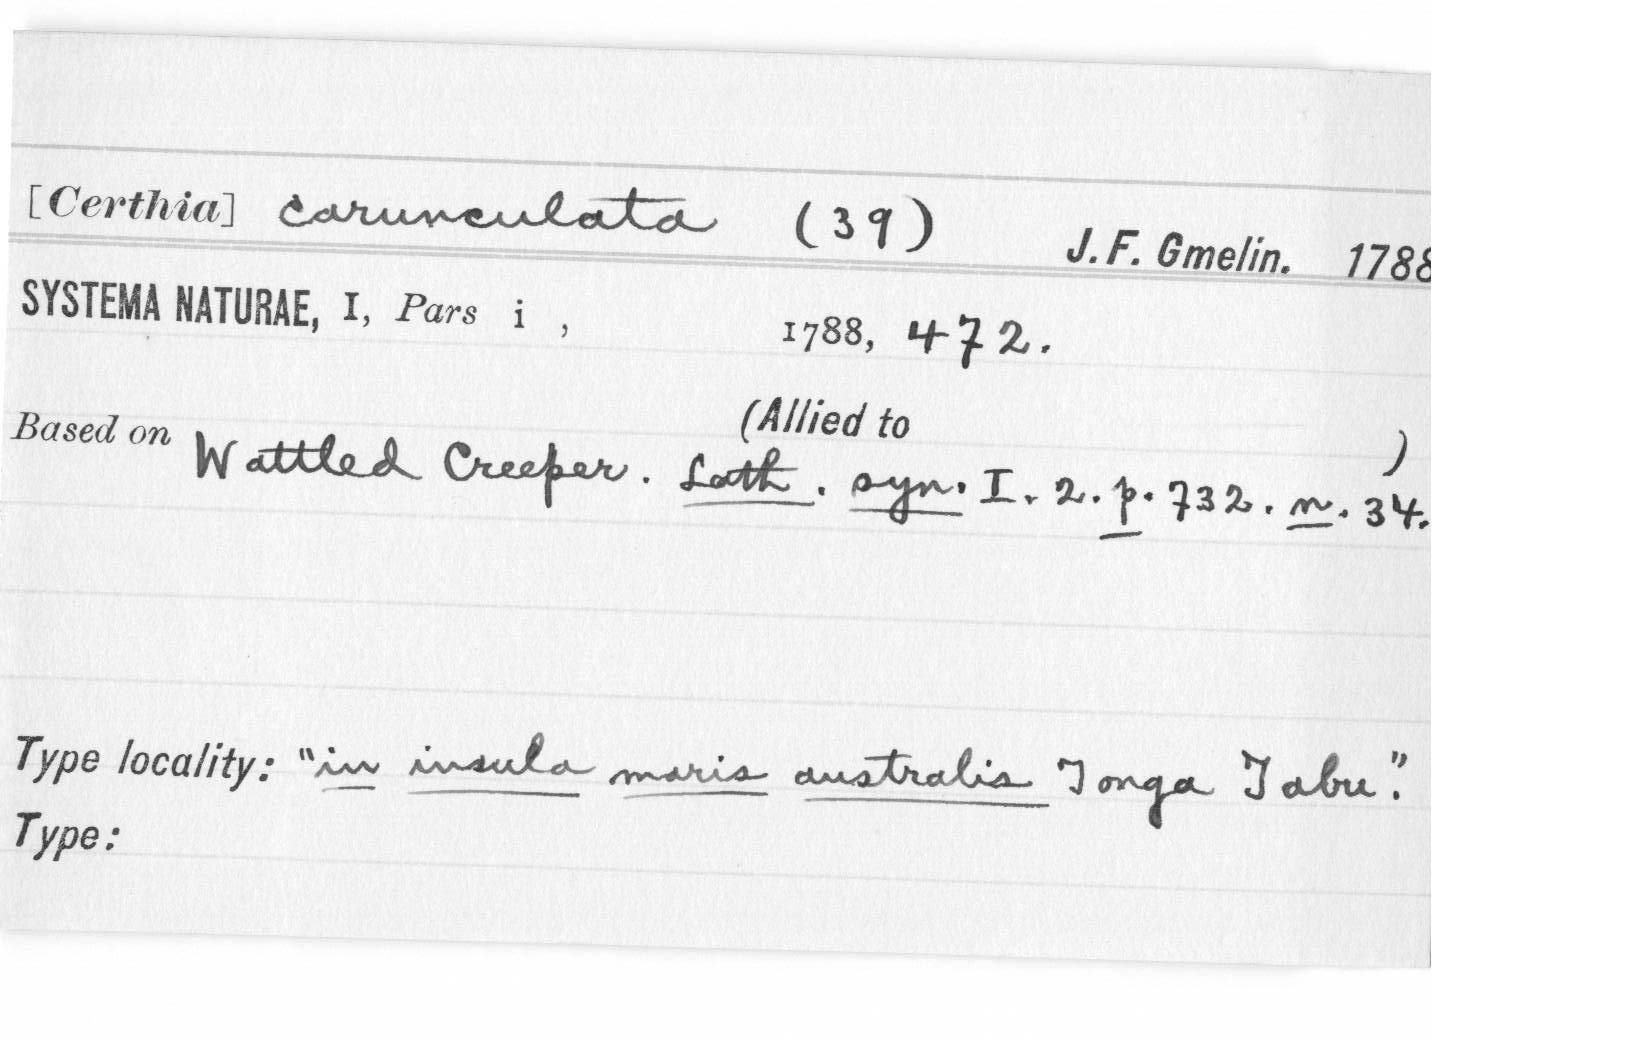 [Certhia] carunculata (39) J. F. Gmelin. 1788
SYSTEMA NATURAE, I, Pars i , 1788, 472.
(Allied to )
Based on Wattled Creeper. Lath. syn. I. 2. p. 732. n. 34.
Type locality: "in insula maris australis Tonga Tabu."
Type: